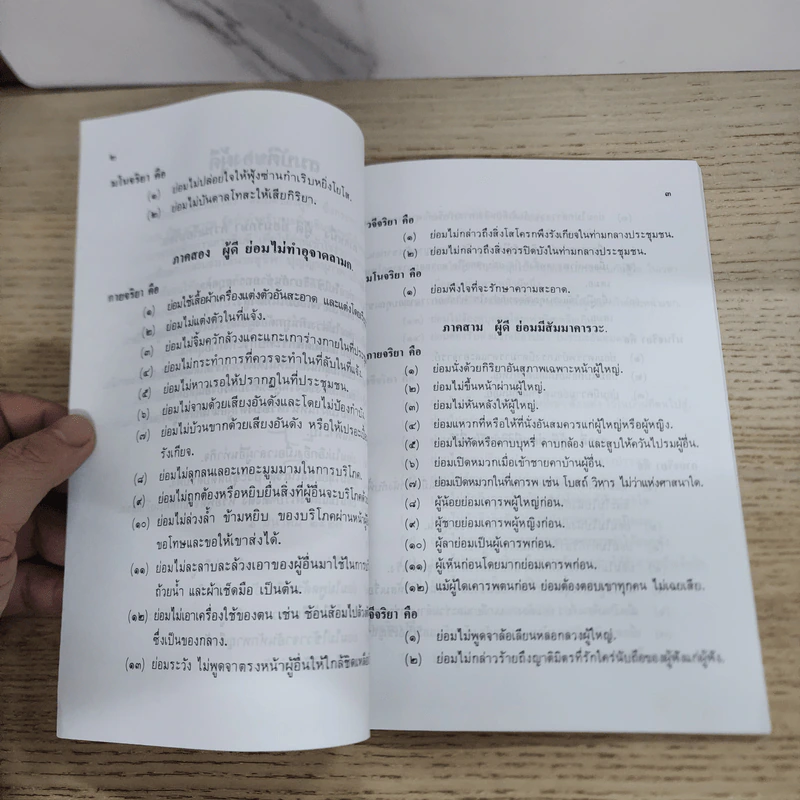 ๒
มโนจริยา คือ
(๑) ย่อมไม่ปล่อยใจให้ฟุ้งซ่านกำเริบหยิ่งโยโส.
(๒) ย่อมไม่บันดาลโทสะให้เสียกิริยา.
ภาคสอง ผู้ดี ย่อมไม่ทำอุจาดลามก.
กายจริยา คือ
(๑) ย่อมใช้เสื้อผ้าเครื่องแต่งตัวอันสะอาด และแต่งโดย
(๒) ย่อมไม่แต่งตัวในที่แจ้ง.
(๓) ย่อมไม่จิ้มควักล้วงแคะแกะเการ่างกายในที่
(๔) ย่อมไม่กระทำการที่ควรจะทำในที่ลับในที่แจ้ง.
(๕) ย่อมไม่หาวเรอให้ปรากฏในที่ประชุมชน.
(๖) ย่อมไม่จามด้วยเสียงอันดังและโดยไม่ป้อง
(๗) ย่อมไม่บ้วนขากด้วยเสียงอันดัง หรือให้เปรอะ
รังเกียจ.
(๘) ย่อมไม่ลุกลนเลอะเทอะมูมมามในการบริโภค.
(๙) ย่อมไม่ถูกต้องหรือหยิบยื่นสิ่งที่ผู้อื่นจะบริโภค
(๑๐) ย่อมไม่ล่วงล้ำ ข้ามหยิบ ของบริโภคผ่านหน้า
ขอโทษและขอให้เขาส่งได้.
(๑๑) ย่อมไม่ละลาบละล้วงเอาของผู้อื่นมาใช้ในการ
ถ้วยน้ำ และผ้าเช็ดมือ เป็นต้น.
(๑๒) ย่อมไม่เอาเครื่องใช้ของตน เช่น ช้อนส้อมไป
ซึ่งเป็นของกลาง.
(๑๓) ย่อมระวัง ไม่พูดจาตรงหน้าผู้อื่นให้ใกล้ชิด
๓
วจีจริยา คือ
(๑) ย่อมไม่กล่าวถึงสิ่งโสโครกพึงรังเกียจในท่ามกลางประชุมชน.
(๒) ย่อมไม่กล่าวถึงสิ่งควรปิดบังในท่ามกลางประชุมชน.
มโนจริยา คือ
(๑) ย่อมพึงใจที่จะรักษาความสะอาด.
ภาคสาม ผู้ดี ย่อมมีสัมมาคารวะ.
กายจริยา คือ
(๑) ย่อมนั่งด้วยกิริยาอันสุภาพเฉพาะหน้าผู้ใหญ่.
(๒) ย่อมไม่ขึ้นหน้าผ่านผู้ใหญ่.
(๓) ย่อมไม่หันหลังให้ผู้ใหญ่.
(๔) ย่อมแหวกที่หรือให้ที่นั่งอันสมควรแก่ผู้ใหญ่หรือผู้หญิง.
(๕) ย่อมไม่ทัดหรือคาบบุหรี่ คาบกล้อง และสูบให้ควันไปรมผู้อื่น.
(๖) ย่อมเปิดหมวกเมื่อเข้าชายคาบ้านผู้อื่น.
(๗) ย่อมเปิดหมวกในที่เคารพ เช่น โบสถ์ วิหาร ไม่ว่าแห่งศาสนาใด.
(๘) ผู้น้อยย่อมเคารพผู้ใหญ่ก่อน.
(๙) ผู้ชายย่อมเคารพผู้หญิงก่อน.
(๑๐) ผู้ลาย่อมเป็นผู้เคารพก่อน.
(๑๑) ผู้เห็นก่อนโดยมากย่อมเคารพก่อน.
(๑๒) แม้ผู้ใดเคารพตนก่อน ย่อมต้องตอบเขาทุกคน ไม่เฉยเสีย.
วจีจริยา คือ
(๑) ย่อมไม่พูดจาล้อเลียนหลอกลวงผู้ใหญ่.
(๒) ย่อมไม่กล่าวร้ายถึงญาติมิตรที่รักใคร่นับถือของผู้ฟังแก่ผู้ฟัง.